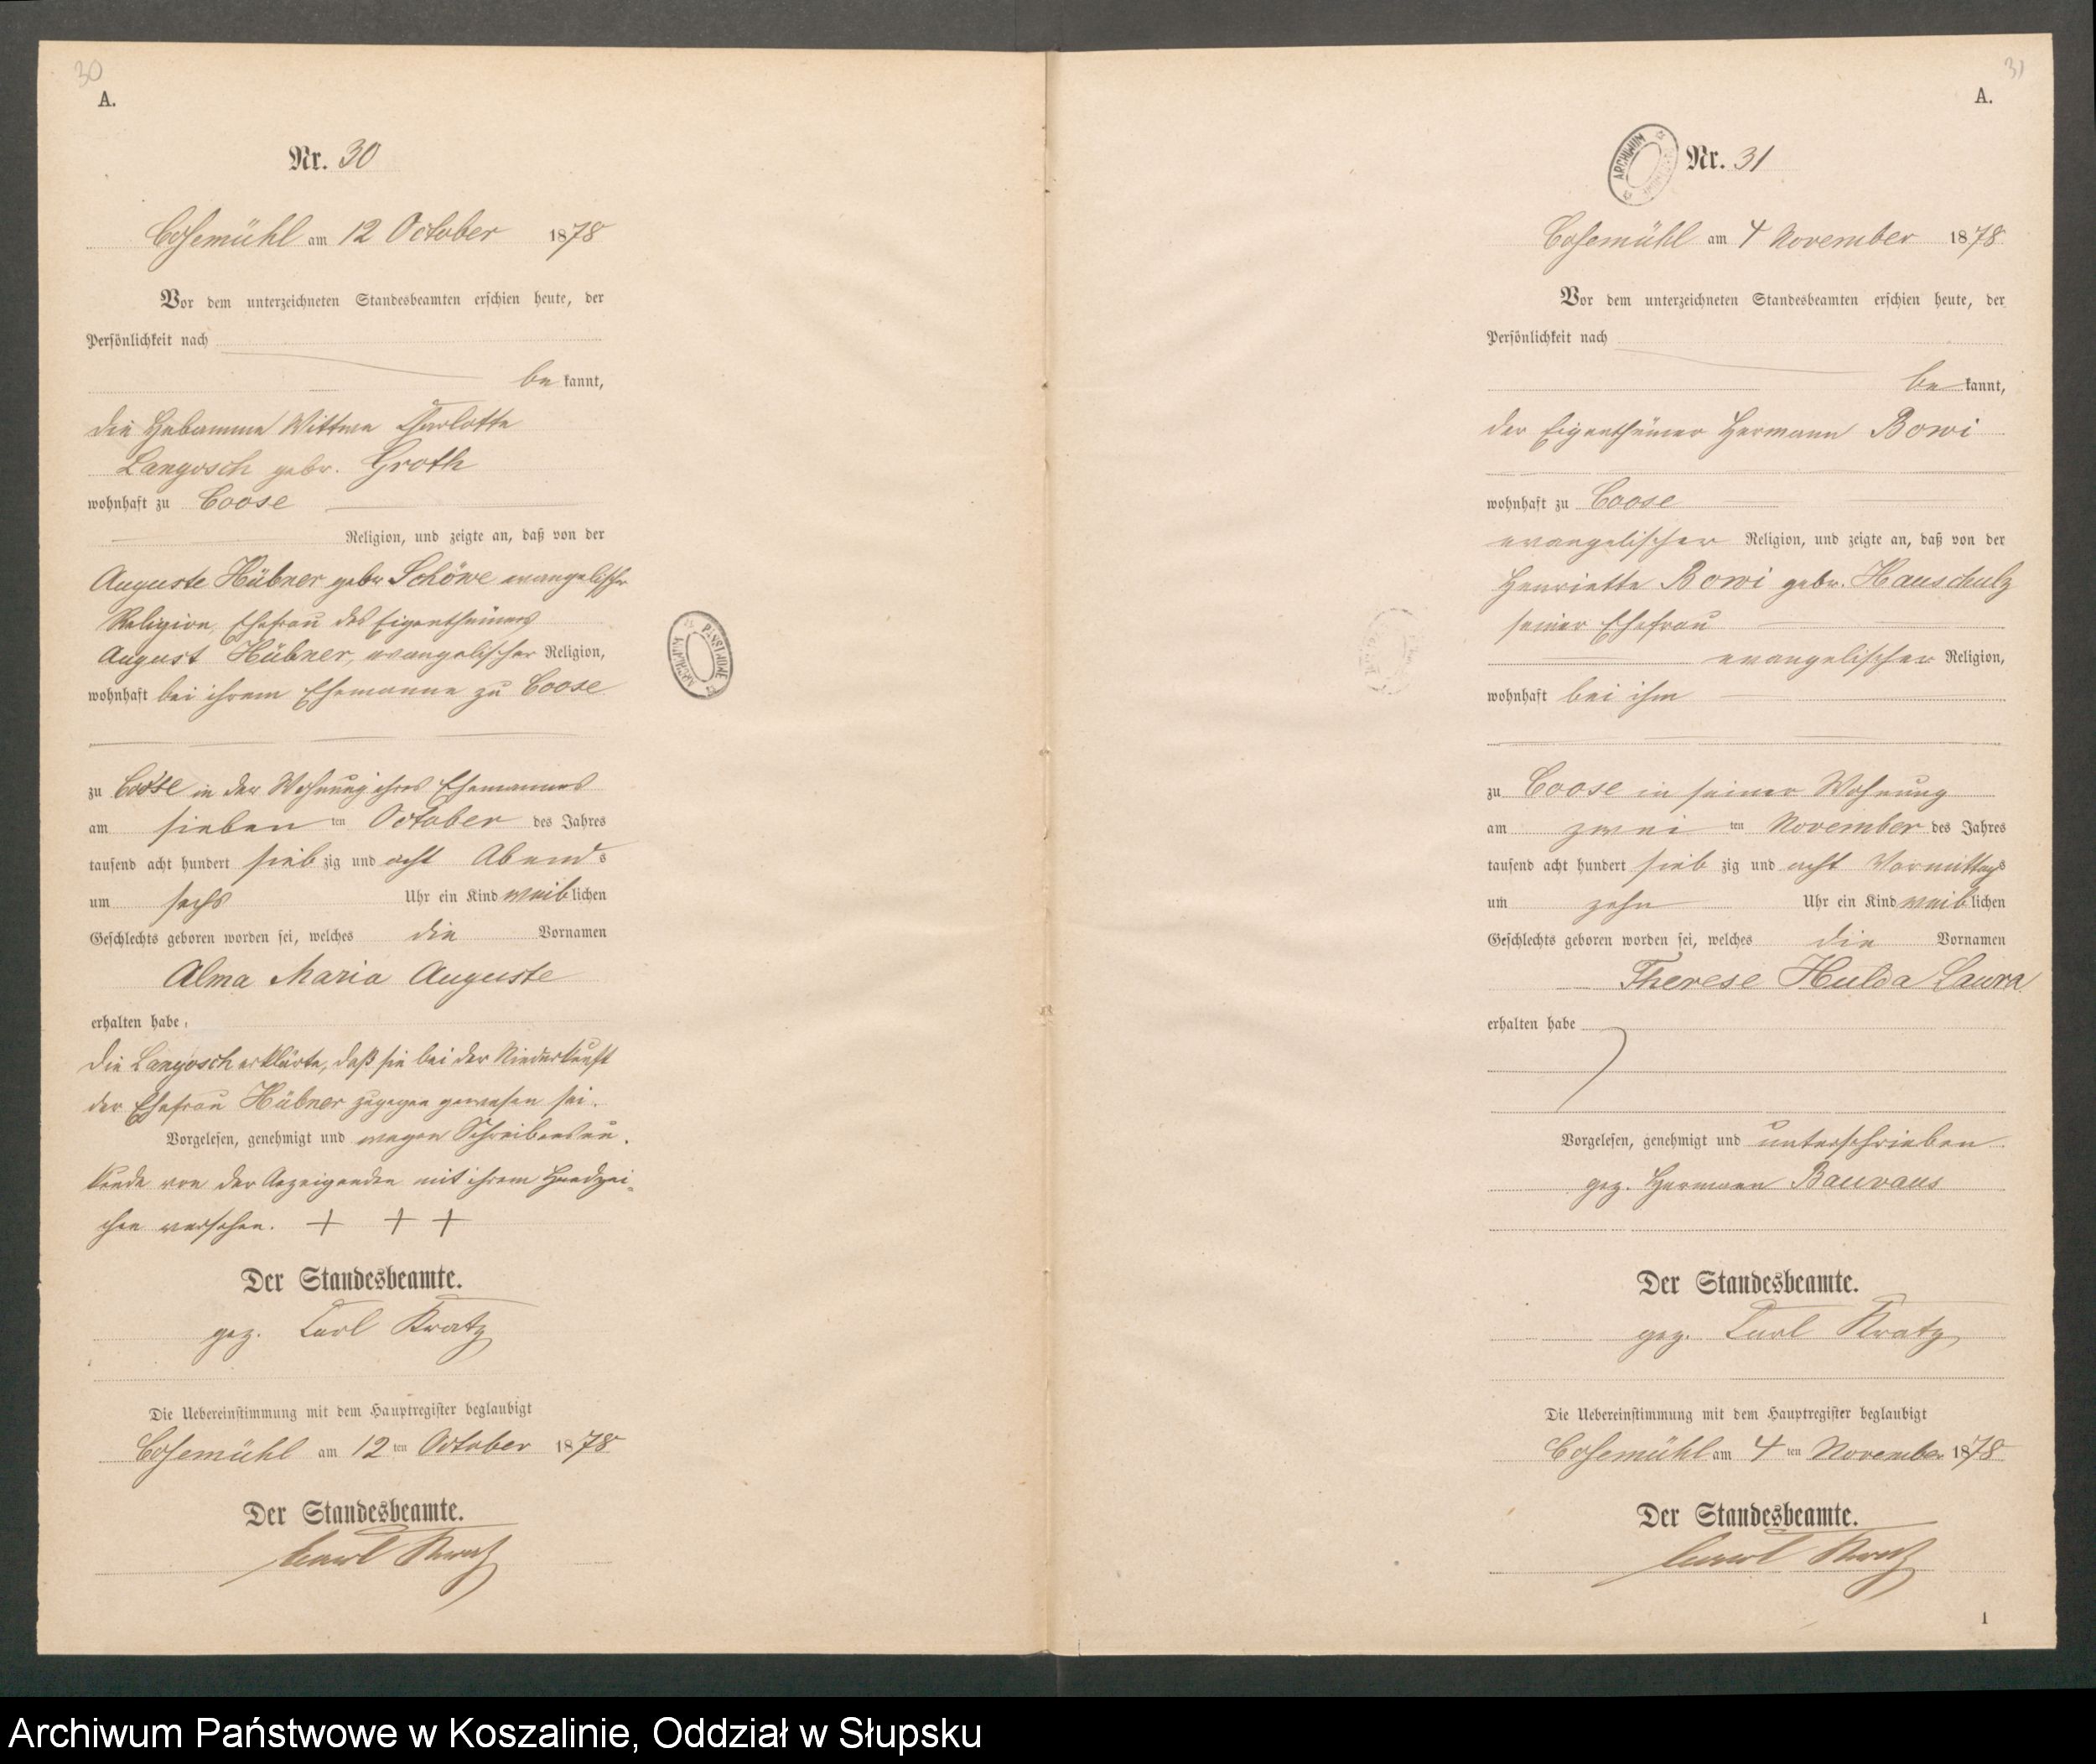 30
A.
Nr. 30
Cosemühl am 12 October 1878
Vor dem unterzeichneten Standesbeamten erschien heute, der
Persönlichkeit nach
be kannt,
die Hebamme Wittwe Charlotte
Langosch gebr. Groth
wohnhaft zu Coose
Religion, und zeigte an, daß von der
Auguste Hübner gebr Schöwe evangelischer
Religion, Ehefrau des Eigenthümers
August Hübner, evangelischer Religion,
wohnhaft bei ihrem Ehemanne zu Coose
zu Coose in der Wohnung ihres Ehemannes
am sieben ten October des Jahres
tausend acht hundert sieb zig und acht Abends
um sechs Uhr ein Kind weiblichen
Geschlechts geboren worden sei, welches die Vornamen
Alma Maria Auguste
erhalten habe.
Die Langosch erklärte, daß sie bei der Niederkunft
der Ehefrau Hübner zugegen gewesen sei.
Vorgelesen, genehmigt und wegen Schreibensun-
kunde von der Anzeigenden mit ihrem Handzei-
chen versehen. + + +
Der Standesbeamte.
gez. Carl Kratz
Die Uebereinstimmung mit dem Hauptregister beglaubigt
Cosemühl am 12 ten October 1878
Der Standesbeamte.
Carl Kratz
ARCHIWUM PAŃSTWOWE
31
A.
ARCHIWUM
Nr. 31
Cosemühl am 4 November 1878
Vor dem unterzeichneten Standesbeamten erschien heute, der
Persönlichkeit nach
be kannt,
der Eigenthümer Hermann Bowi
wohnhaft zu Coose
evangelischer Religion, und zeigte an, daß von der
Henriette Bowi gebr. Hauschulz
seiner Ehefrau
evangelischer Religion,
wohnhaft bei ihm
zu Coose in seiner Wohnung
am zwei ten November des Jahres
tausend acht hundert sieb zig und acht Vormittags
um zehn Uhr ein Kind weiblichen
Geschlechts geboren worden sei, welches die Vornamen
Therese Hulda Laura
erhalten habe
Vorgelesen, genehmigt und unterschrieben
gez. Hermann Bauvaus
Der Standesbeamte.
gez. Carl Kratz
Die Uebereinstimmung mit dem Hauptregister beglaubigt
Cosemühl am 4 ten November 1878
Der Standesbeamte.
Carl Kratz
1
Archiwum Państwowe w Koszalinie, Oddział w Słupsku